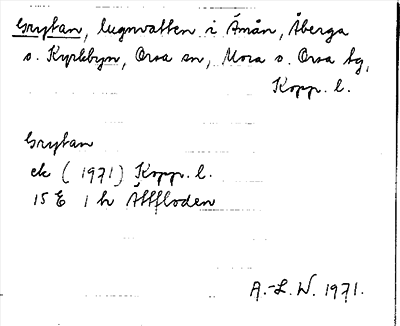 Grytan, lugnvatten i Ämån, Åberga
o. Kyrkbyn, Orsa sn, Mora o. Orsa tg,
Kopp. l.
Grytan
ek (1971) Kopp. l.
15 E 1 h Älvfloden
A.-L. W. 1971.